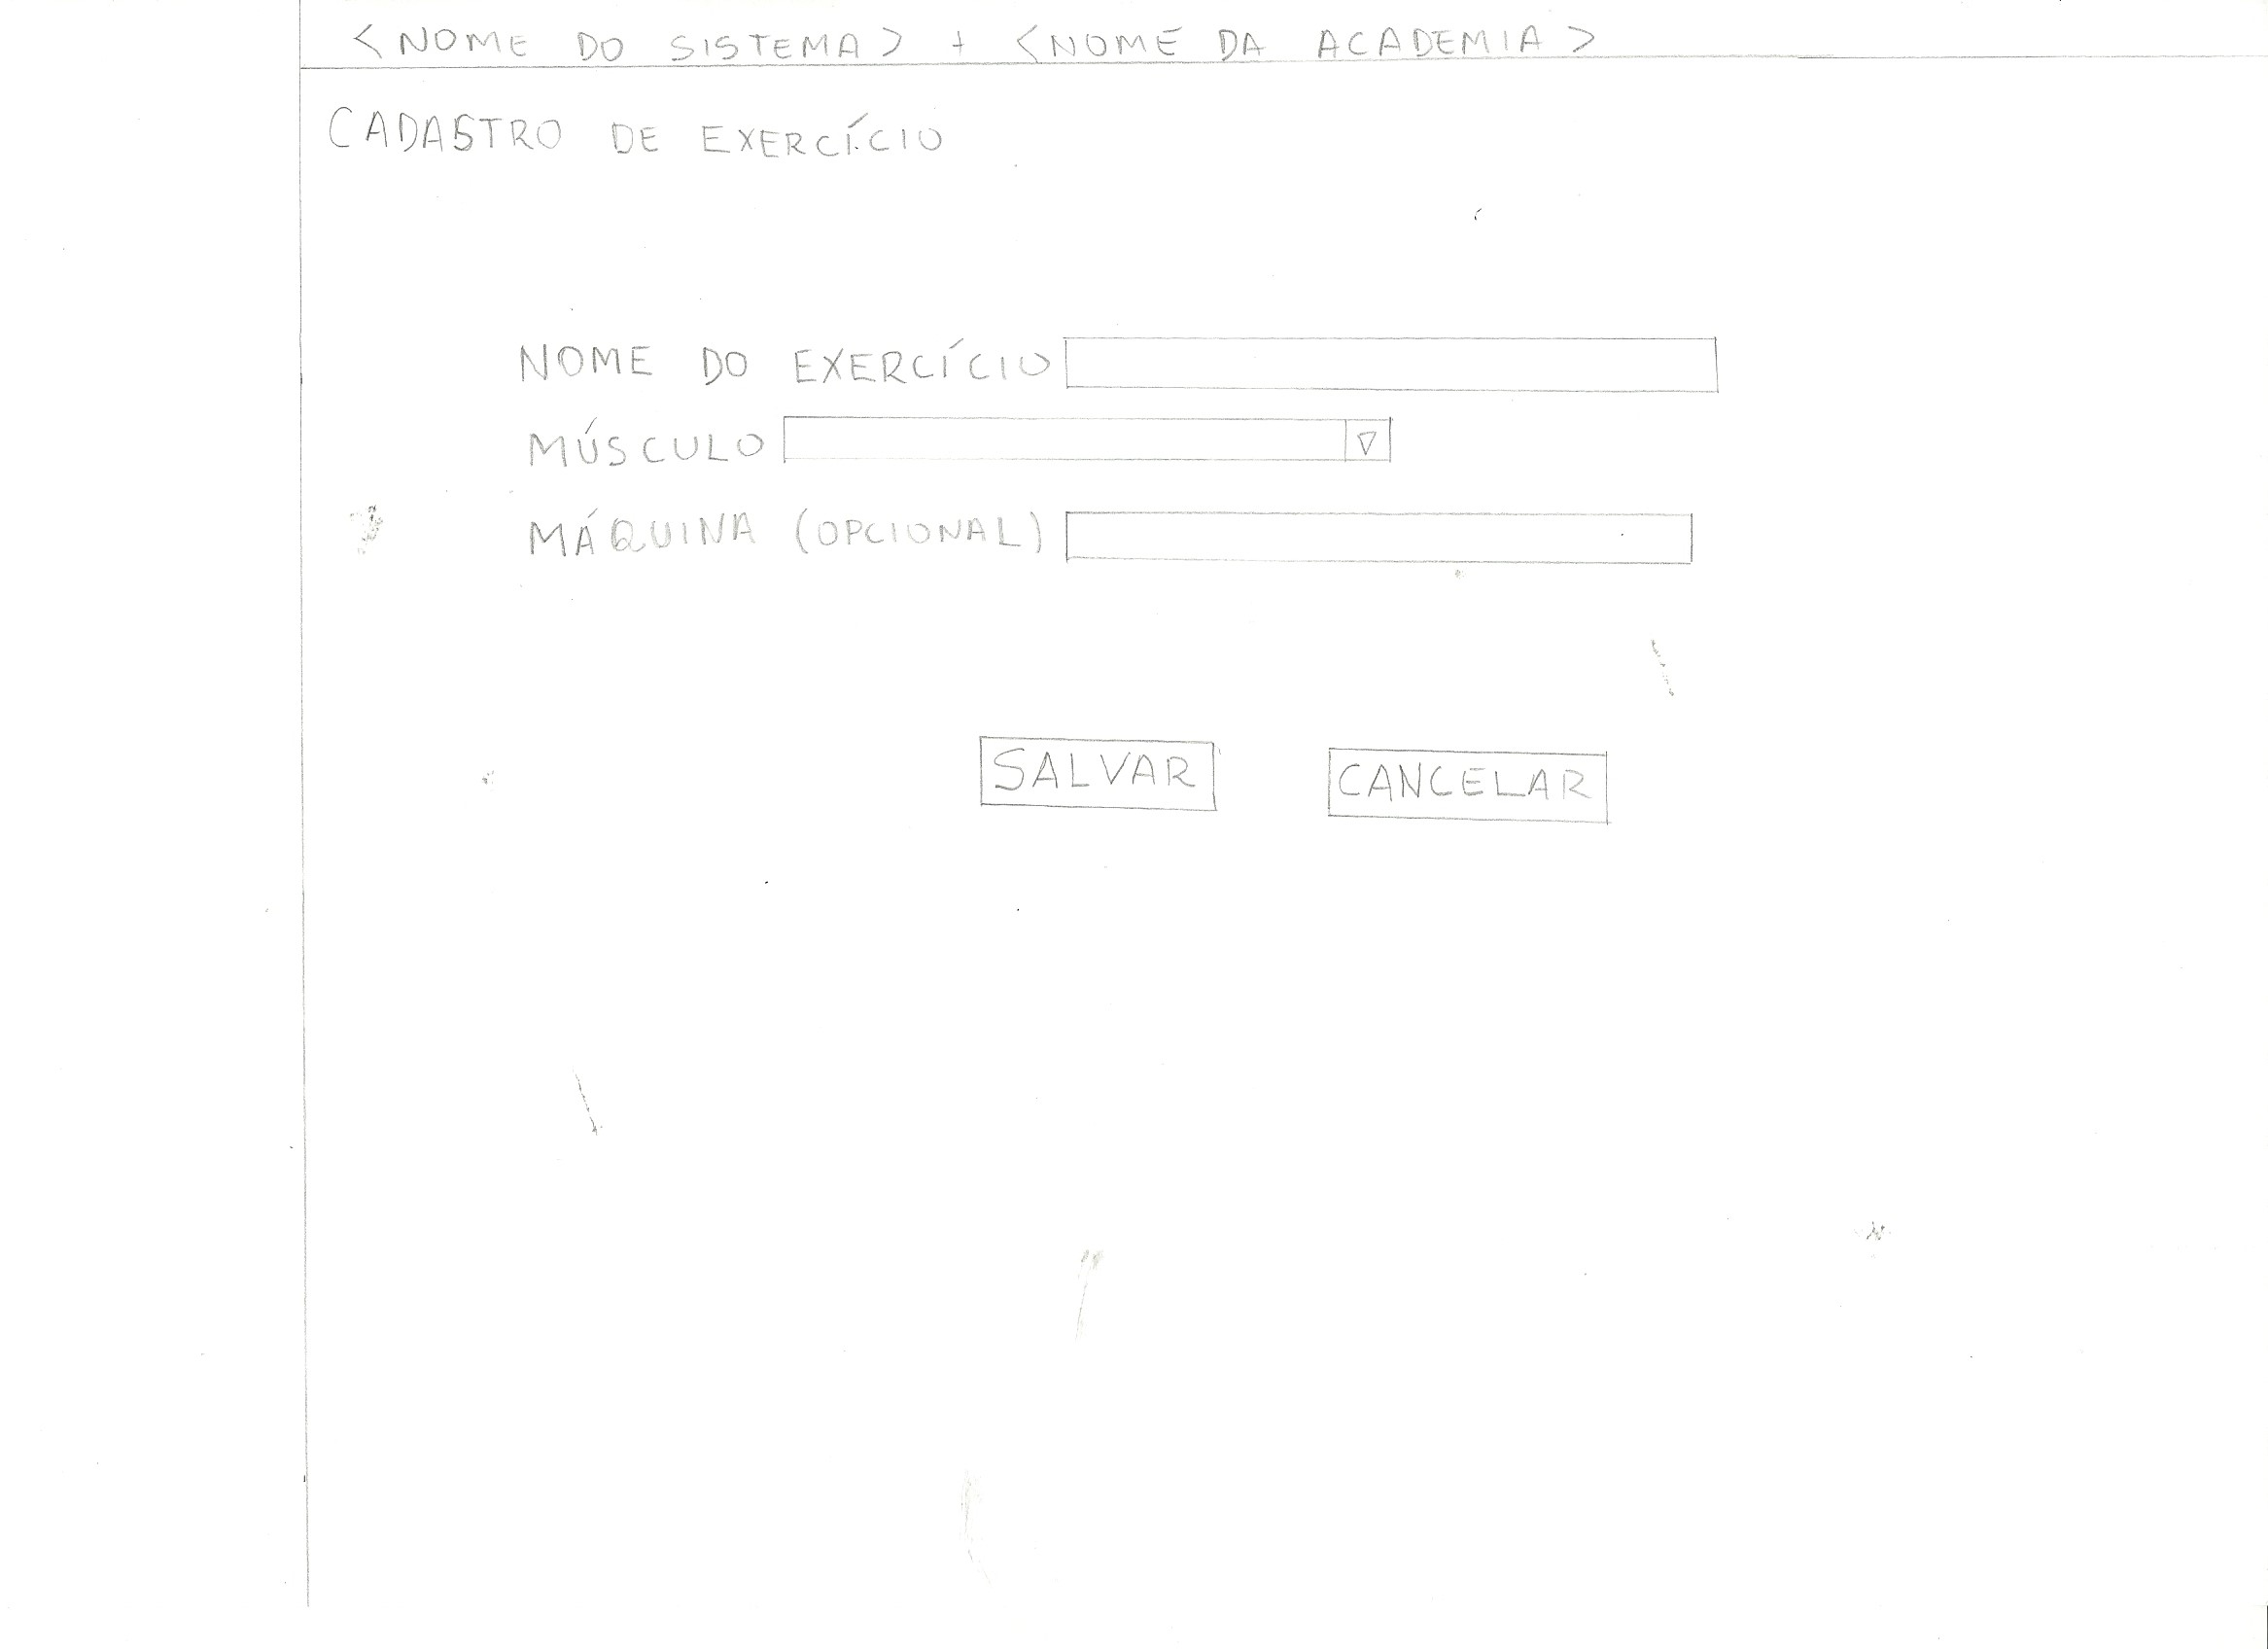 <NOME DO SISTEMA> + <NOME DA ACADEMIA>
CADASTRO DE EXERCÍCIO
NOME DO EXERCÍCIO
MÚSCULO
MÁQUINA (OPCIONAL)
SALVAR CANCELAR